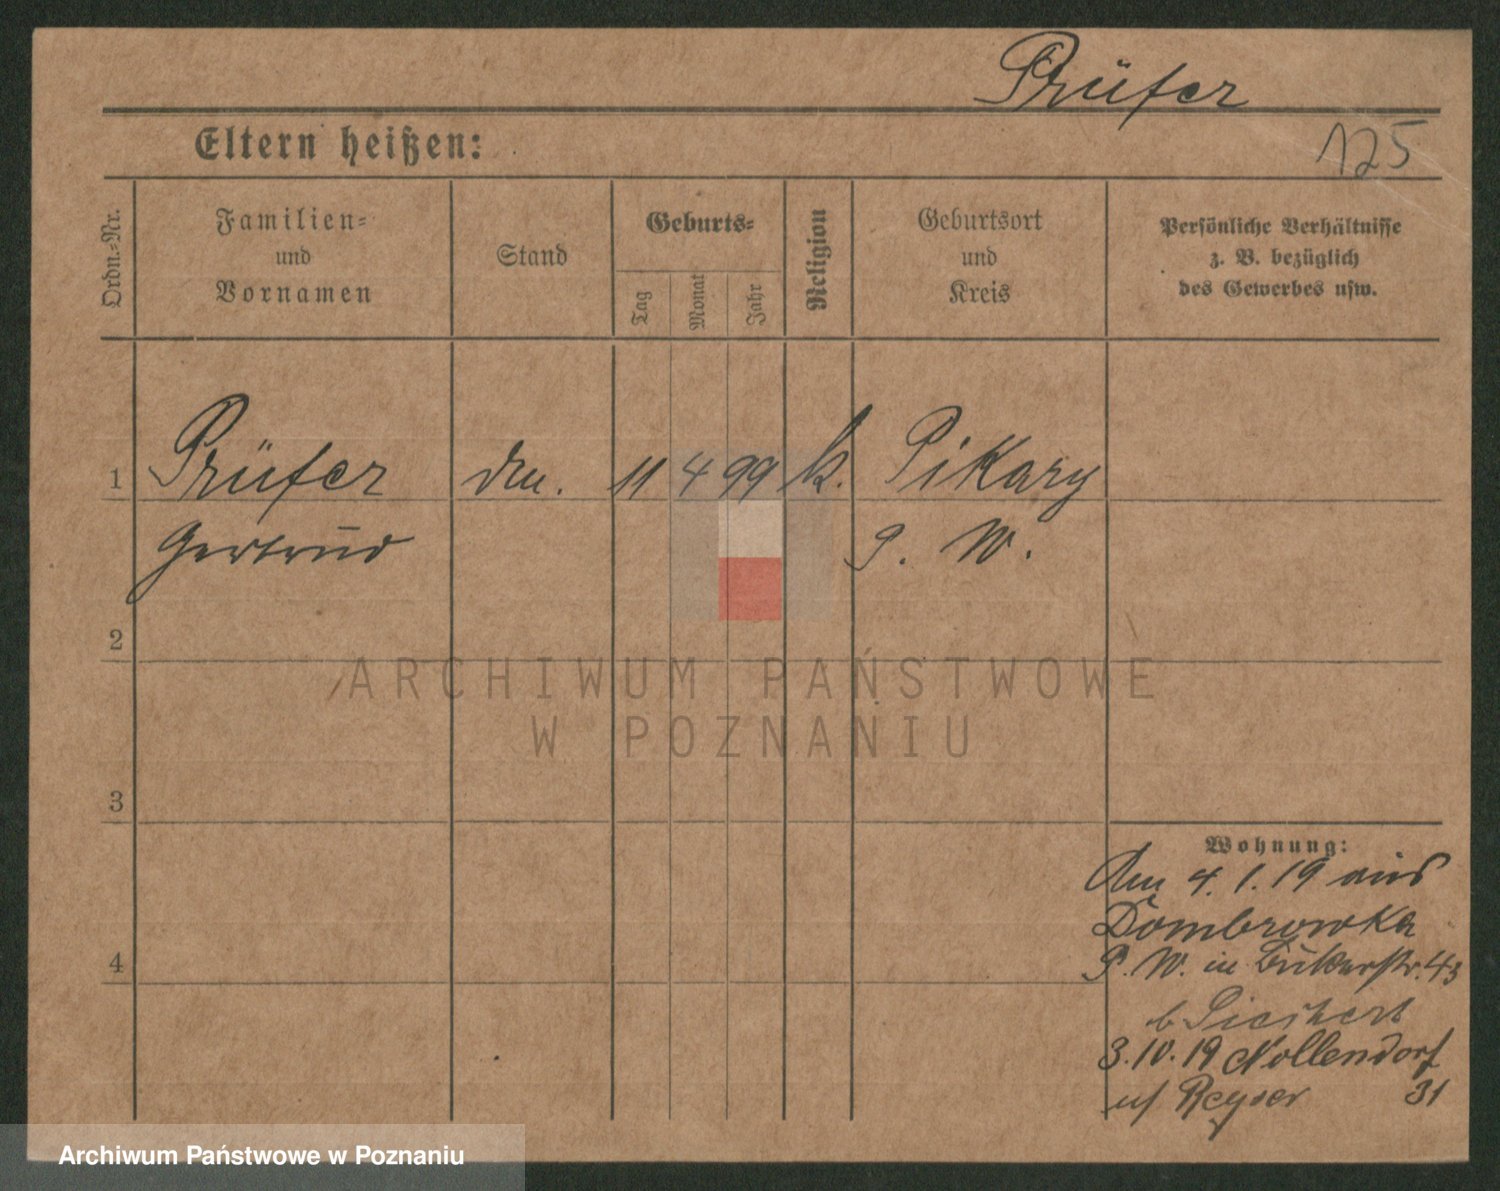 Prüfer
125
Eltern heißen:
Ordn.-Nr.
Familien-
und
Vornamen
Stand
Geburts-
Tag
Monat
Jahr
Religion
Geburtsort
und
Kreis
Persönliche Verhältnisse
z. B. bezüglich
des Gewerbes usw.
1 Prüfer 11 4 99 k. Pikary
Gertrud P. W.
2
3
4
Wohnung:
Am 4.1.19 aus
Dombrowka
P. W. in Bukerstr. 43
b
3.10.19 Nollendorf
31
ARCHIWUM PAŃSTWOWE
W POZNANIU
Archiwum Państwowe w Poznaniu